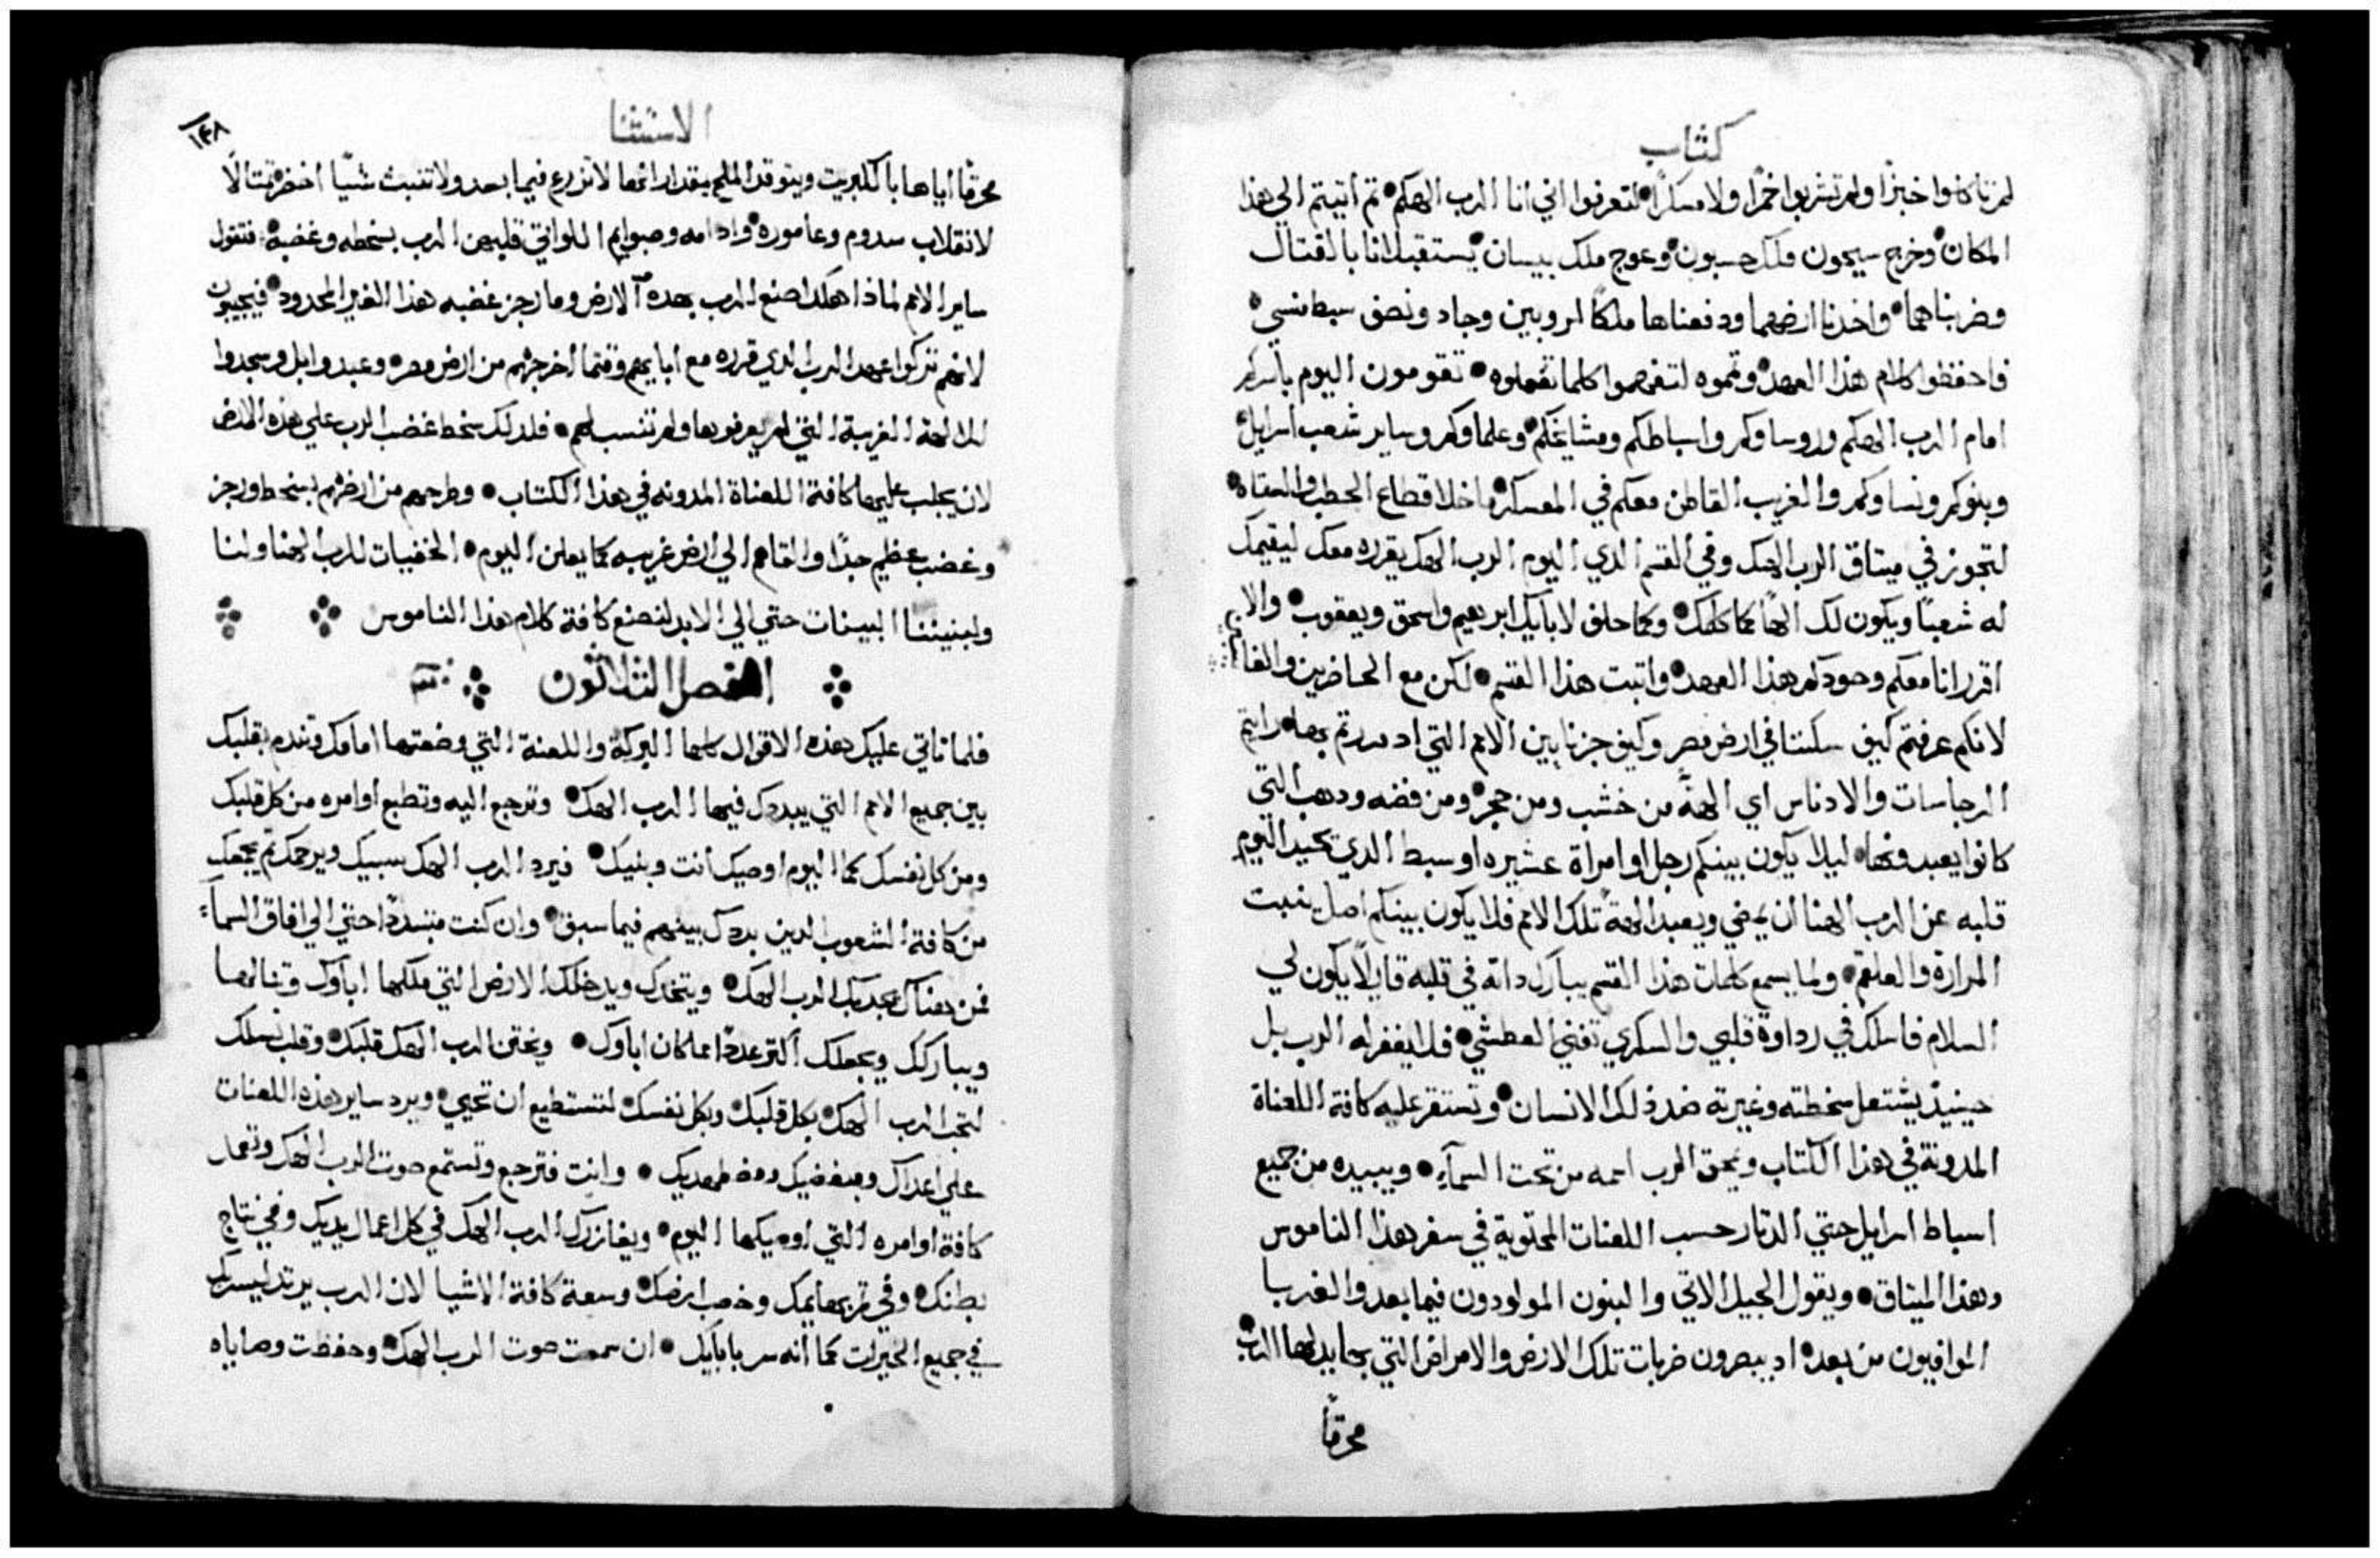 كتاب
لم تاكلوا خبزا ولم تشربوا خمرًا ولا مسكرًا لتعرفوا اني انا الرب الهكم ثم اتيتم الي هذا
المكان وخرج سيحون ملك حسبون وعوج ملك بيسان يستقبلانا بالقتال
وضربناهما واخدنا ارضهما ودفعناها ملكًا لروبين وجاد ونصف سبط منسي
فاحفظوا كلام هذا العهد وتموه لتفهموا كلما تفعلوه تقومون اليوم باسركم
امام الرب الهكم وروساوكم واسباطكم ومشايخكم وعلماوكم وساير شعب اسرايل
وبنوكم ونساوكم والغريب القاطن معكم في المعسكر ماخلا قطاع الحطب والسقاه
لتجوز في ميتاق الرب الهك وفي القسم الدي اليوم الرب الهك يقرره معك ليقيمك
له شعبًا ويكون لك الهًا كما كلمك وكما حلف لابايك ابرهيم واسحق ويعقوب والا
اقرر انا معكم وحودكم هذا العهد واتبت هذا القسم لكن مع الحاضرين والغا
لانكم عرفتم كيف سكنتا في ارض مصر وكيف جزنا بين الامم التي اد مررتم بها رايتم
الرجاسات والادناس اي الهةً من خشب ومن حجر ومن فضه ودهب التي
كانوا يعبدونها ليلا يكون بينكم رجل او امراة عشيره او سبط الدي يحيد اليوم
قلبه عن الرب الهنا ان يمضي ويعبد الهةً تلك الامم فلا يكون بينكم اصل ينبت
المرارة والعلقم ولما يسمع كلمات هذا القسم يبارك داته في قلبه قايلًا يكون لي
السلام فاسلك في رداوة قلبي والسكري تفني العطشي فلا يغفر له الرب بل
حينيدٍ يشتعل سخطته وغيرته ضد دلك الانسان وتستقر عليه كافة اللعناة
المدونة في هذا الكتاب ويمحق الرب اسمه من تحت السمآء ويبيده من جميع
اسباط اسرايل حتي الدتار حسب اللعنات المحتوية في سفر هذا الناموس
وهذا الميتاق ويقول الجيل الاتي والبنون المولودون فيما بعد والغربا
الموافيون من بعد اد يبصرون ضربات تلك الارض والامراض التي بها يبدلها الرب
محرقًا
الاستثنا
١٤٨
محرقًا اياها بالكبريت ويتوقد الملح بمقدار انها لا تزرع فيما بعد ولا تنبت شيًا اخضر تمتالًا
لانقلاب سدوم وعاموره وادامه وصبوايم اللواتي قلبهن الرب بسخطه وغضبه فتقول
ساير الامم لماذا هكذا صنع الرب بهده الارض وما رجز غضبه هذا الغير المحدود فيجيبون
لانهم تركوا عهد الرب الدي قرره مع ابايهم وقتما اخرجهم من ارض مصر وعبدوا بل وسجدوا
للالهة الغريبة التي لم يعرفوها ولم تنتسب لهم فلدلك سخط غضب الرب علي هذه الارض
لان يجلب عليها كافة اللعناة المدونه في هذا الكتاب وطرحهم من ارضهم بسخط ورجز
وغضب عظيم جدًا والقاهم الي ارض غريبه كما يعلن اليوم الخفيات للرب الهنا ولنا
ولبنيننا البينات حتي الي الابد لنصنع كافة كلام هذا الناموس
الفصل الثلاثون
فلما تاتي عليك هذه الاقوال كلها البركة واللعنة التي وضعتها امامك وتندم بقلبك
بين جميع الامم التي يبددك فيها الرب الهك وترجع اليه وتطيع اوامره من كل قلبك
ومن كل نفسك كما اليوم اوصيك انت وبنيك فيرد الرب الهك سبيك ويرحمك تم يجمعك
من كافة الشعوب الدين بددك بينهم فيما سبق وان كنت متبددًا حتي الي افاق السمآء
فمن هناك يجدبك الرب الهك ويتخدك ويدخلك الارض التي ملكها اباوك وتنالها
ويباركك ويجعلك اكتر عددًا مما كان اباوك ويختن الرب الهك قلبك وقلب نسلك
لتحب الرب الهك بكل قلبك وبكل نفسك لتستطيع ان تحيي ويرد ساير هذه اللعنات
علي اعداك ومبغضيك ومضطهديك وانت فترجع وتستمع صوت الرب الهك وتعمل
كافة اوامره التي اوصيكها اليوم ويغازرك الرب الهك في كل اعمال يديك وفي نتاج
بطنك وفي تمر بهايمك وخصب ارضك وسعة كافة الاشيا لان الرب يرتد ليسر بك
في جميع الخيرات كما انه سر بابايك ان سمعت صوت الرب الهك وحفظت وصاياه